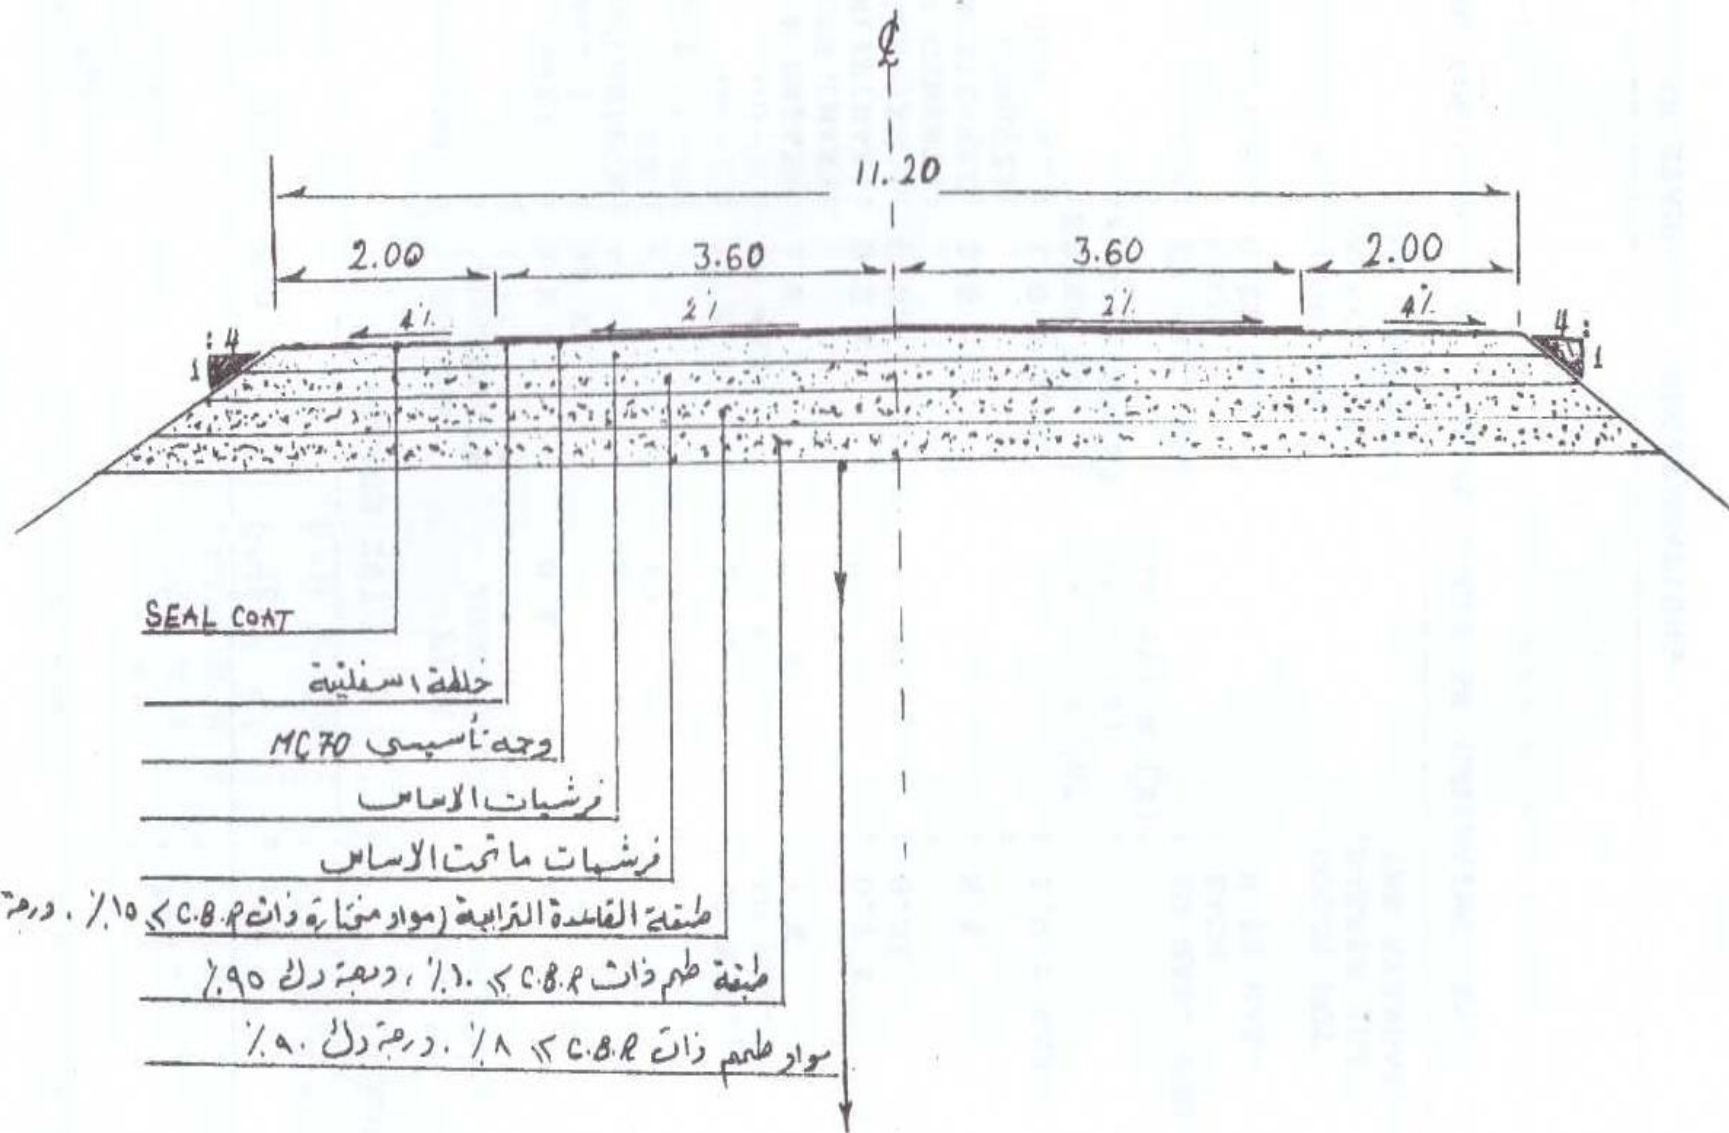 ℄
11.20
2.00 3.60 3.60 2.00
4% 2% 2% 4%
4 4
1 1
SEAL COAT
خلطة اسفلتية
وجه تأسيسي MC70
فرشيات الاساس
فرشيات ما تحت الاساس
طبقة القاعدة الترابية (مواد مختارة ذات C.B.R ≥ ١٥٪ ، درجة
طبقة طمم ذات C.B.R ≥ ١٠٪ ، درجة دك ٩٥٪
مواد طمم ذات C.B.R ≥ ٨٪ . درجة دك ٩٠٪